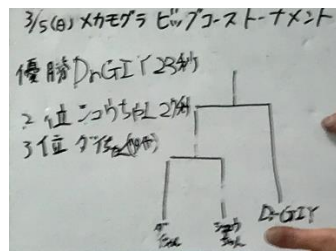 3/5(日)メカモグラ ビッグコーストーナメント
優勝 Dr.GIY 23秒
2位 ショウちゃん 27秒
3位 ダイちゃん
ダイちゃん
ショウちゃん
Dr.GIY